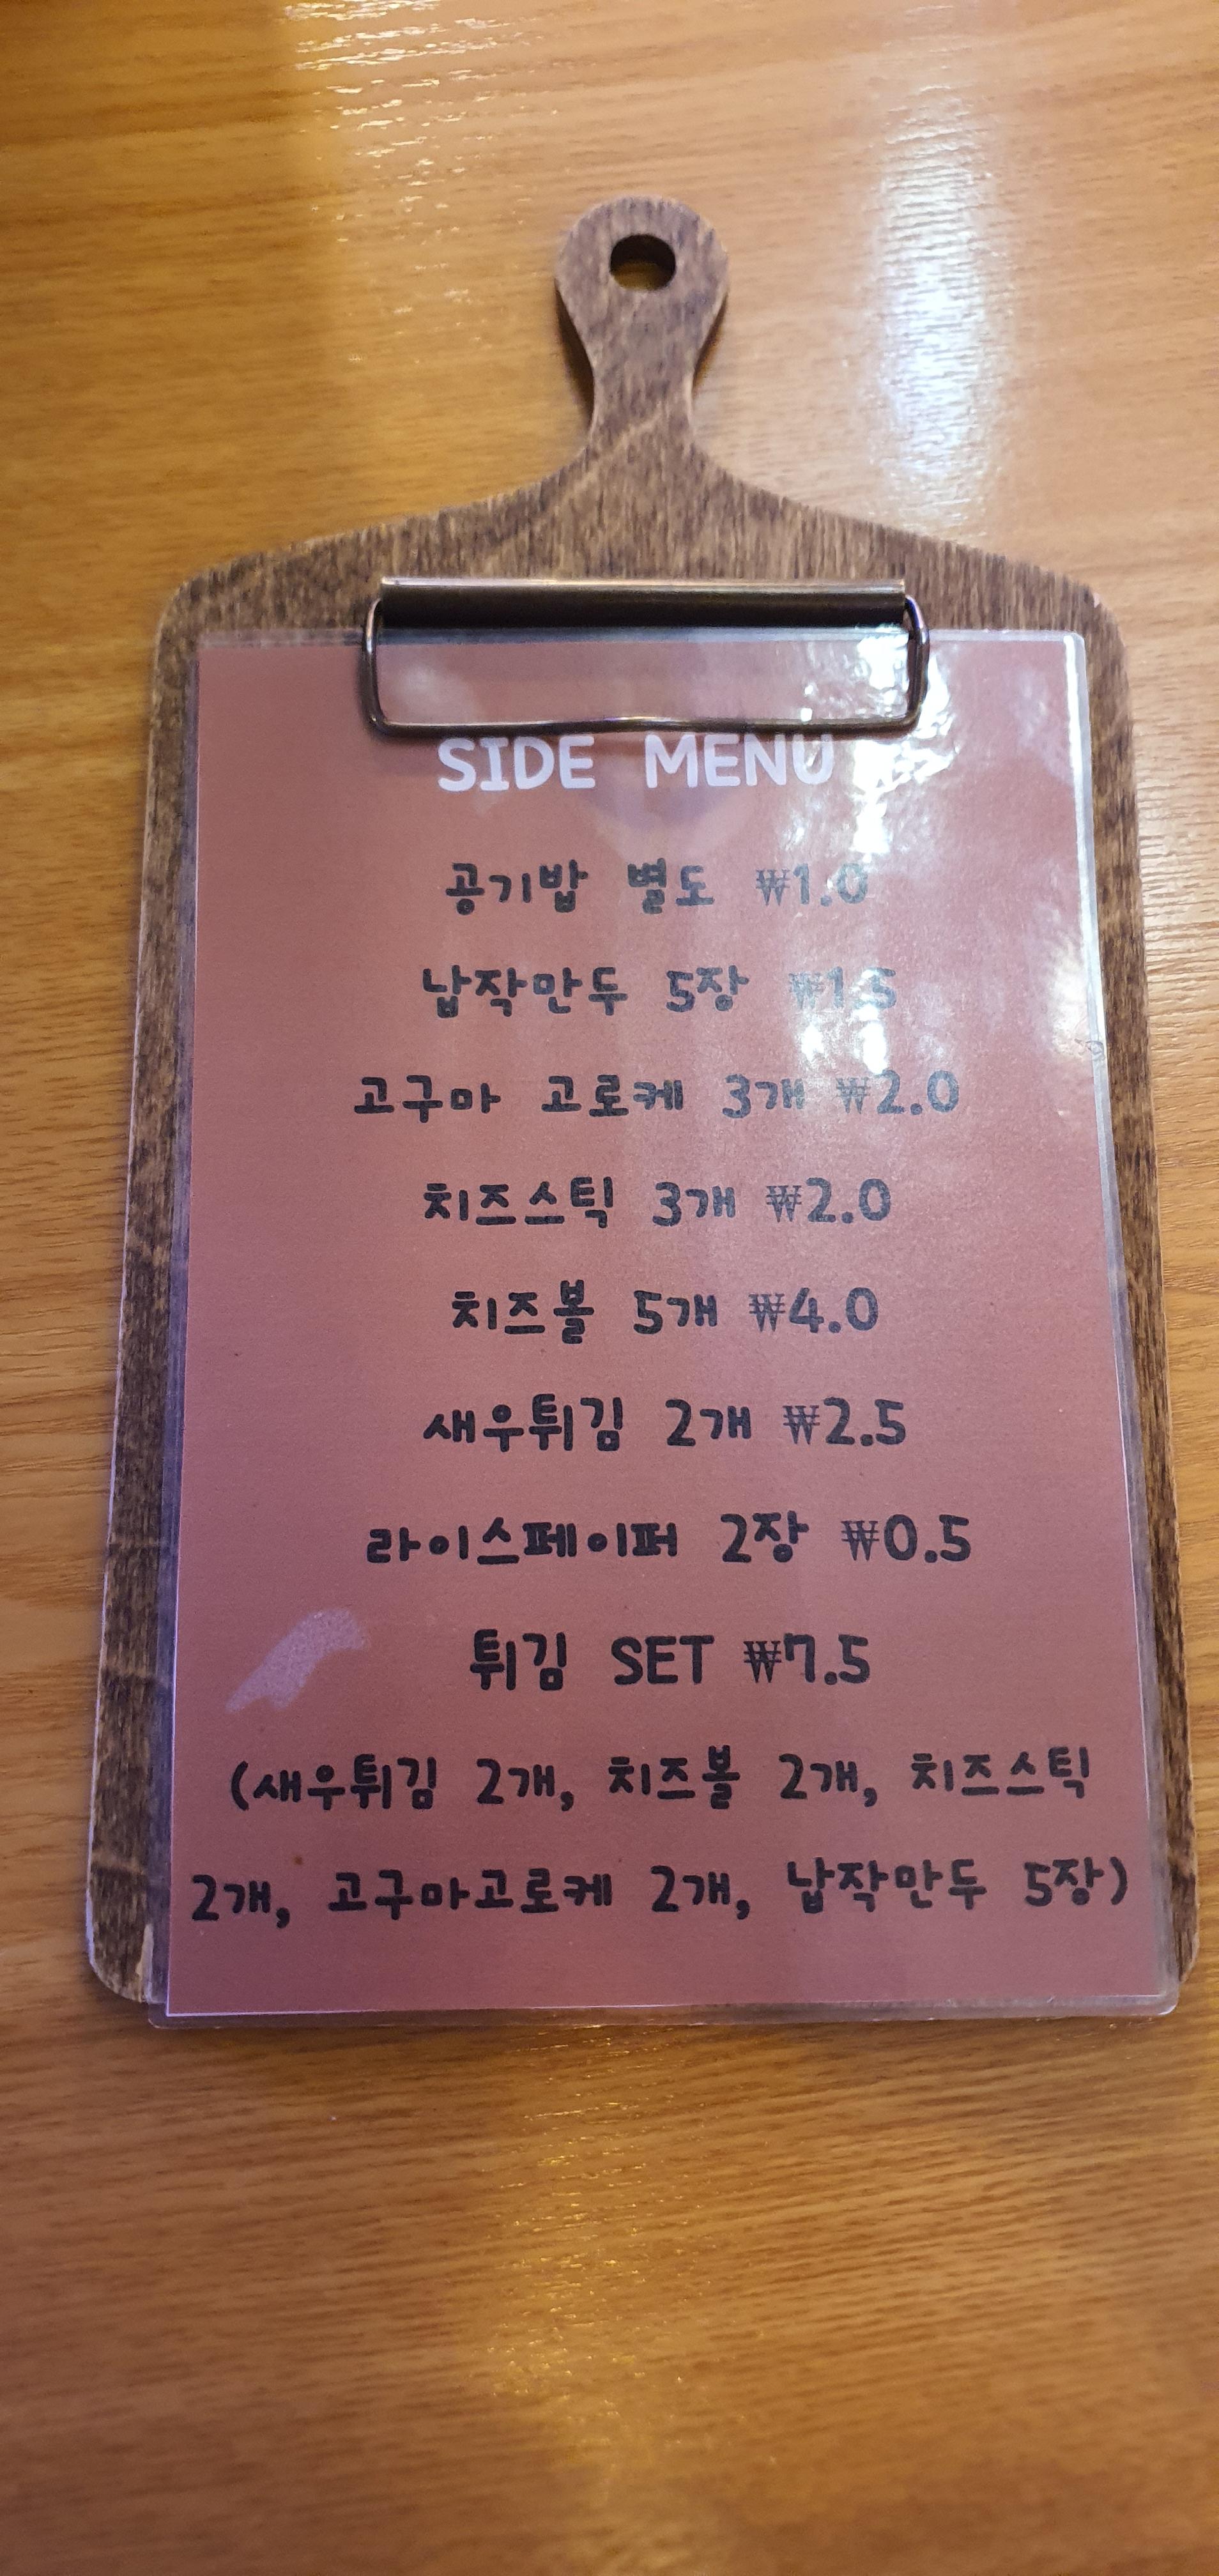 SIDE MENU
공기밥 별도 ₩1.0
납작만두 5장 ₩1.5
고구마 고로케 3개 ₩2.0
치즈스틱 3개 ₩2.0
치즈볼 5개 ₩4.0
새우튀김 2개 ₩2.5
라이스페이퍼 2장 ₩0.5
튀김 SET ₩7.5
(새우튀김 2개, 치즈볼 2개, 치즈스틱
2개, 고구마고로케 2개, 납작만두 5장)